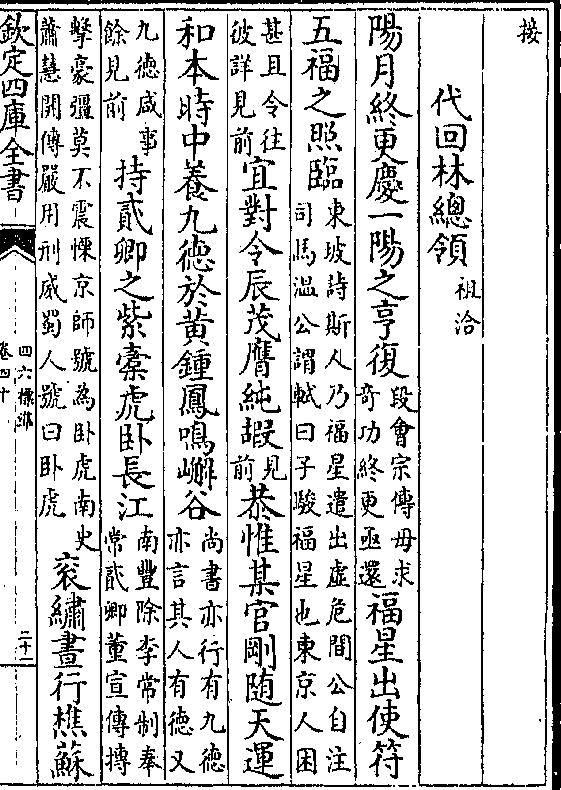 接
代回林總領祖洽
陽月終更慶一陽之亨復段會宗傳毋求奇功終更亟還福星出使符
五福之照臨東坡詩斯人乃福星遣出虛危間公自注司馬溫公謂軾曰子駿福星也東京人困
甚且令往彼詳見前宜對令辰茂膺純嘏見前恭惟某官剛随天運
和本時中養九德於黄鍾鳳鳴嶰谷尚書亦行有九德亦言其人有德又
九德咸事餘見前持貳卿之紫橐虎卧長江南豐除李常制奉常貳卿董宣傳摶
擊豪彊莫不震慄京師號為卧虎南史蕭慧開傳嚴用刑威蜀人號曰卧虎衮繡晝行樵蘇
欽定四庫全書
四六標準
卷四十
二十二